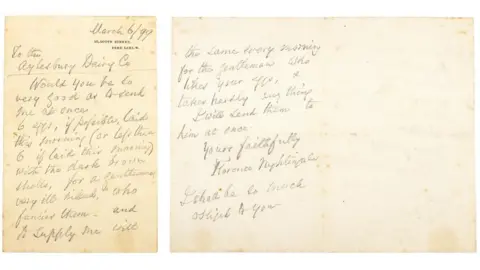 March 6/97
To the
Aylesbury Dairy Co
Would you be so
very good as to send
me at once
6 eggs, if possible, laid
this morning (or less than
6 if laid this morning)
with the dark brown
shells, for a gentleman
very ill indeed, who
fancies them - and
to supply me with
the same every morning
for the gentleman who
likes your eggs, &
takes hardly any thing
I will send them to
him at once
Yours faithfully
Florence Nightingale
I shall be so much
obliged to you